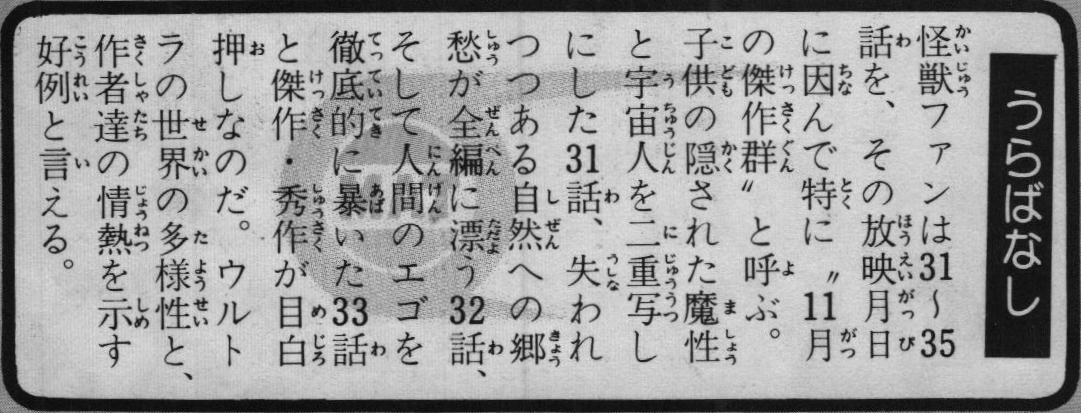 うらばなし
怪獣ファンは31～35
話を、その放映月日
に因んで特に〝11月
の傑作群〟と呼ぶ。
子供の隠された魔性
と宇宙人を二重写し
にした31話、失われ
つつある自然への郷
愁が全編に漂う32話、
そして人間のエゴを
徹底的に暴いた33話
と傑作・秀作が目白
押しなのだ。ウルト
ラの世界の多様性と、
作者達の情熱を示す
好例と言える。